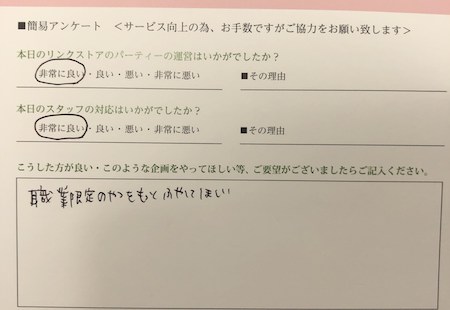 ■簡易アンケート ＜サービス向上の為、お手数ですがご協力をお願い致します＞
本日のリンクストアのパーティーの運営はいかがでしたか？
非常に良い・良い・悪い・非常に悪い ■その理由
本日のスタッフの対応はいかがでしたか？
非常に良い・良い・悪い・非常に悪い ■その理由
こうした方が良い・このような企画をやってほしい等、ご要望がございましたらご記入ください。
職業限定のやつをもっとふやしてほしい